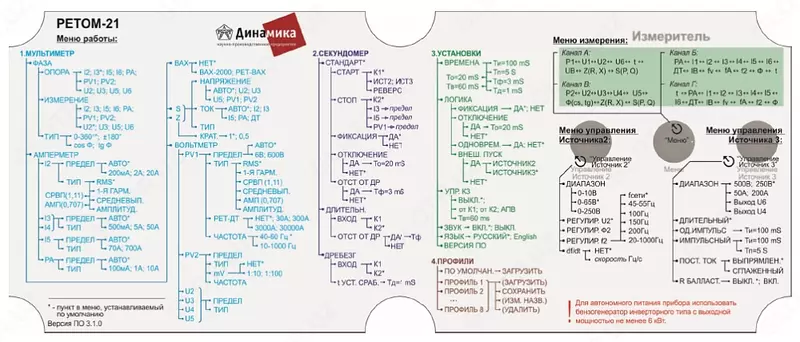 РЕТОМ-21
Меню работы:
Динамика
научно-производственное предприятие
1.МУЛЬТИМЕТР
ФАЗА
ОПОРА → I2; I3*; I5; I6; PA;
PV1; PV2;
U2; U3; U5; U6
ИЗМЕРЕНИЕ
I2; I3; I5; I6; PA;
PV1; PV2;
U2*; U3; U5; U6
ТИП → 0-360°*; ±180°
cos Ф; tg Ф
АМПЕРМЕТР
I2 → ПРЕДЕЛ → АВТО*
200мА; 2А; 20А
ТИП → RMS*
1-Я ГАРМ.
СРВП(1,11)
СРЕДНЕВЫП.
АМП(0,707)
АМПЛИТУД.
I3 → ПРЕДЕЛ → АВТО*
I4 500мА; 5А; 50А
I5 → ПРЕДЕЛ → АВТО*
ТИП 70А; 700А
PA → ПРЕДЕЛ → АВТО*
ТИП 100мА; 1А; 10А
* - пункт в меню, устанавливаемый
по умолчанию
Версия ПО 3.1.0
ВАХ → НЕТ*
ВАХ-2000; РЕТ-ВАХ
НАПРЯЖЕНИЕ
АВТО*; U2; U3
U5; PV1; PV2
S ТОК → АВТО*; I2; I3
Z I5; PA; ДТ
ТИП
КРАТ → 1*; 0,5
ВОЛЬТМЕТР
PV1 → ПРЕДЕЛ → АВТО*
6В; 600В
ТИП → RMS*
1-Я ГАРМ.
СРВП (1,11)
СРЕДНЕВЫП.
АМП (0,707)
АМПЛИТУД.
РЕТ-ДТ → НЕТ*; 30А; 300А
3000А; 30000А
ЧАСТОТА → 40-60 Гц*
10-1000 Гц
PV2 → ПРЕДЕЛ
ТИП → НЕТ*
mV → 1:10; 1:100
ЧАСТОТА
U2
U3 ПРЕДЕЛ
U4 ТИП
U5
2.СЕКУНДОМЕР
СТАНДАРТ*
СТАРТ → К1*
ИСТ2; ИСТ3
РЕВЕРС
СТОП → К2*
I3 → предел
I5 → предел
PV1 → предел
ФИКСАЦИЯ → ДА*
НЕТ
ОТКЛЮЧЕНИЕ
ДА → То=20 mS
НЕТ*
ОТСТ ОТ ДР
ДА → Тф=3 mS
НЕТ*
ДЛИТЕЛЬН.
ВХОД → К1*
К2
ОТСТ ОТ ДР → ДА* → Тф
НЕТ
ДРЕБЕЗГ
ВХОД → К1*
К2
t УСТ. СРАБ. → Тд= mS
3.УСТАНОВКИ
ВРЕМЕНА → Ти=100 mS
Тп=5 S
То=20 mS Тф=3 mS
Тв=60 mS Тд=1 mS
ЛОГИКА
ФИКСАЦИЯ → ДА*; НЕТ
ОТКЛЮЧЕНИЕ
ДА → То=20 mS
НЕТ*
ОДНОВРЕМ. → ДА*; НЕТ
ВНЕШ. ПУСК
ДА → ИСТОЧНИК2
ИСТОЧНИК3*
НЕТ*
УПР. КЗ
ВЫКЛ.*
от К1; от К2; АПВ
Тв=60 mS
ЗВУК → ВКЛ.*; ВЫКЛ.
ЯЗЫК → РУССКИЙ*; English
ВЕРСИЯ ПО
4.ПРОФИЛИ
ПО УМОЛЧАН. → ЗАГРУЗИТЬ
ПРОФИЛЬ 1 (ЗАГРУЗИТЬ)
ПРОФИЛЬ 2 СОХРАНИТЬ
... (ИЗМ. НАЗВ.)
ПРОФИЛЬ 8 (УДАЛИТЬ)
Меню измерения: Измеритель
Канал А:
P1↔ U1↔ U2 ↔ U6 ↔ t ↔
UB↔ Z(R, X) ↔ S(P, Q)
Канал Б:
PA↔ I1↔ I2↔ I3↔ I4↔ I5↔ I6↔
ДТ↔ IB↔ fv ↔ fA ↔ f2 ↔ Ф ↔ t
Канал В:
P2↔ U2↔ U3↔ U4 ↔ U5↔
Ф(cs, tg)↔ Z(R, X) ↔ S(P, Q)
Канал Г:
t ↔ PA↔ I1↔ I2↔ I3↔ I4↔ I5↔
I6↔ ДТ↔ IB ↔ fv ↔ fA ↔ f2 ↔ Ф
Меню управления
Источника2:
"Управление
Источник 2"
Управление
Источник 2
"Меню"
Меню
Меню управления
Источника 3:
"Управление
Источник 3"
Управление
Источник 3
ДИАПАЗОН
0-10В
0-65В*
0-250В
РЕГУЛИР. U2*
РЕГУЛИР. Ф2
РЕГУЛИР. f2
[сети*]
45-55Гц
100Гц
150Гц
200Гц
20-1000Гц
dfidt → НЕТ*
скорость Гц/с
ДИАПАЗОН → 500В; 250В*
50А; 200А
Выход U6
Выход U4
ДЛИТЕЛЬНЫЙ*
ОД.ИМПУЛЬС → Ти=100 mS
ИМПУЛЬСНЫЙ → Ти=100 mS
Тп=5 S
ПОСТ. ТОК → ВЫПРЯМЛЕН.*
СГЛАЖЕННЫЙ
R БАЛЛАСТ. → ВЫКЛ.*; ВКЛ.
! Для автономного питания прибора использовать
бензогенератор инверторного типа с выходной
мощностью не менее 6 кВт.